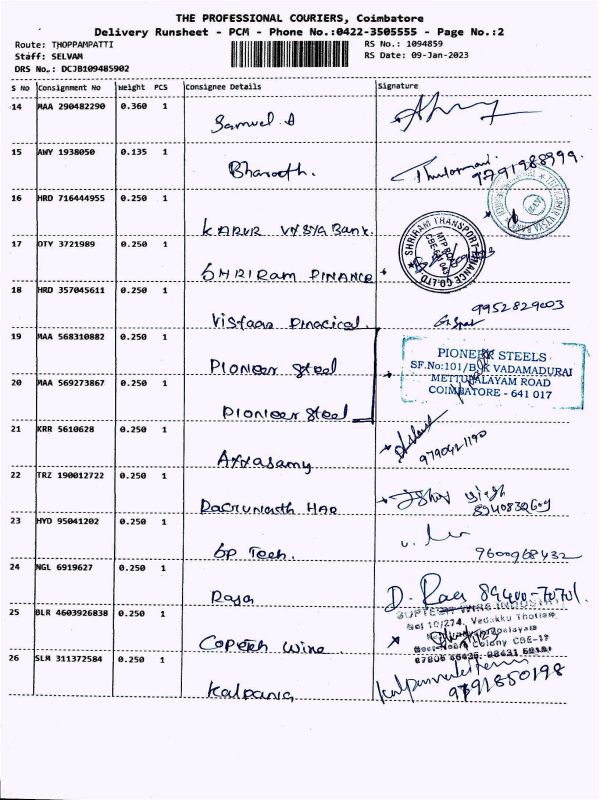 THE PROFESSIONAL COURIERS, Coimbatore
Delivery Runsheet - PCM - Phone No.:0422-3505555 - Page No.:2
Route: THOPPAMPATTI
RS No.: 1094859
Staff: SELVAM
RS Date: 09-Jan-2023
DRS No.: DCJB109485902
S No Consignment No Weight PCS Consignee Details Signature
14 MAA 290482290 0.360 1 Samuel A
15 AWY 1938050 0.135 1 Bharath. 9791988999.
16 HRD 716444955 0.250 1 KARUR VYSYA Bank.
17 OTY 3721989 0.250 1 SHRIRam FINANCE
SHRIRAM TRANSPORT FINANCE CO.LTD
MTP RD
18 HRD 357045611 0.250 1 Vistaar 9952829003
19 MAA 568310882 0.250 1 Pioneer Steel
PIONEER STEELS
SF.No:101/B K VADAMADURAI
METTUPALAYAM ROAD
COIMBATORE - 641 017
20 MAA 569273867 0.250 1 Pioneer Steel
21 KRR 5610628 0.250 1 Ayyasamy 9790421190
22 TRZ 190012722 0.250 1 HAR
23 HYD 95041202 0.250 1 SP Tech. 9600968432
24 NGL 6919627 0.250 1 Raja D. Raja 89400-70701.
25 BLR 4603926838 0.250 1 Wire
26 SLM 311372584 0.250 1 Kalpana 9791850198